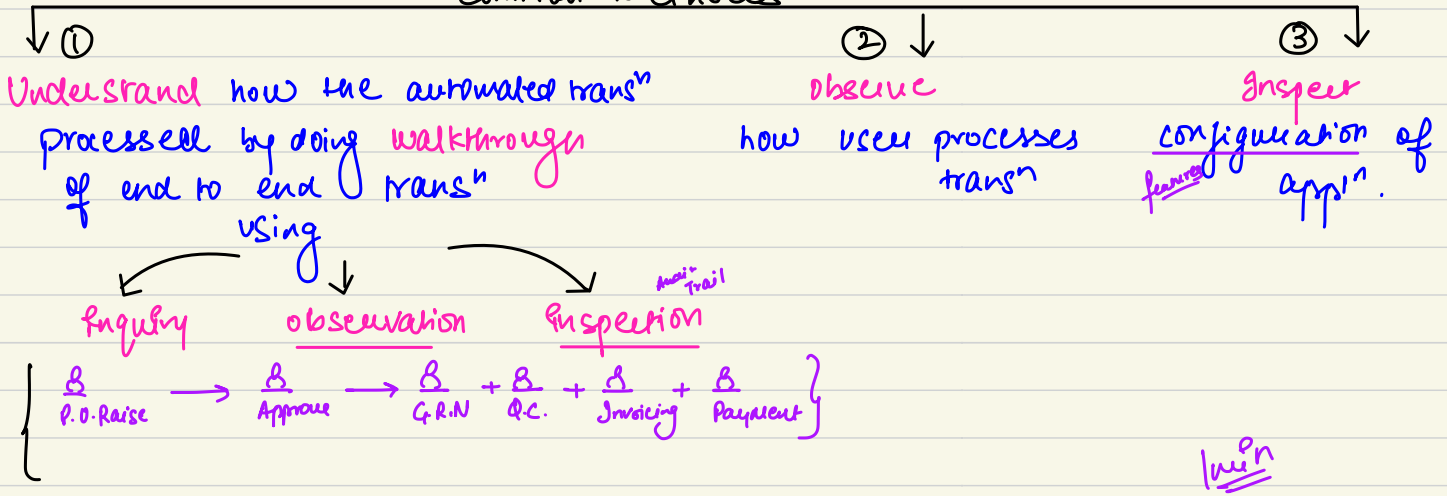 ① ② ③
Understand how the automated transⁿ
processed by doing walkthrough
of end to end transⁿ
using
Inquiry observation Inspection
Audit Trail
P.O.Raise → Approve → G.R.N + Q.C. + Invoicing + Payment
observe
how user processes
transⁿ
Inspect
configuration of
features applⁿ.
1min